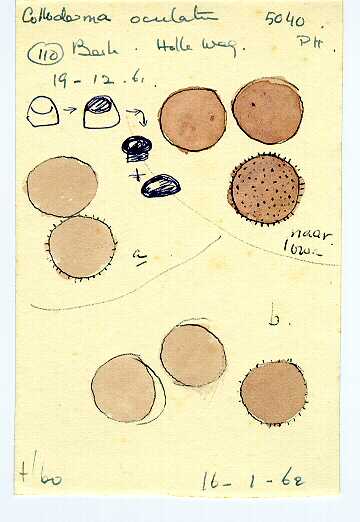 Colloderma oculatum 5040.
(110) Bark. Holle Weg. PH.
19-12.61.
+
naar
Iowa
a
b.
16-1-62